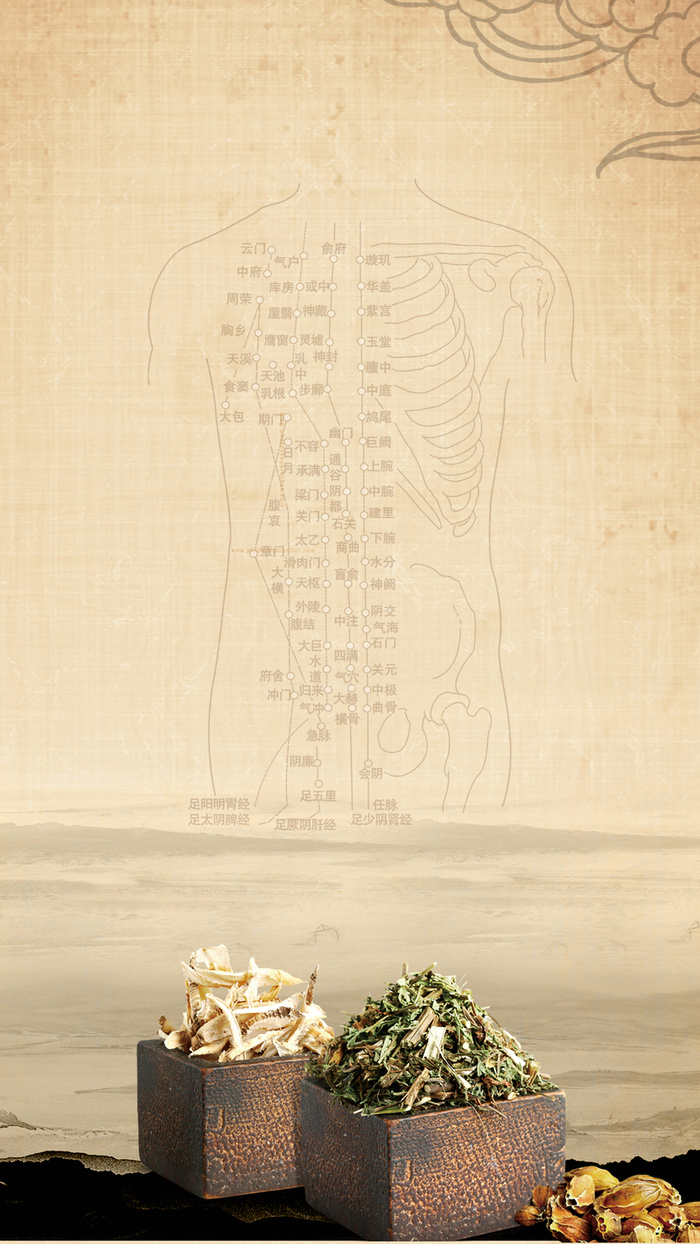 云门
俞府
气户
璇玑
中府
库房
或中
华盖
周荣
屋翳
神藏
紫宫
胸乡
膺窗
灵墟
玉堂
天溪
乳中
神封
膻中
天池
食窦
乳根
步廊
中庭
大包
期门
鸠尾
幽门
日月
不容
巨阙
通谷
承满
上腕
梁门
阴都
中腕
腹哀
关门
石关
建里
太乙
商曲
下腕
章门
滑肉门
水分
大横
天枢
盲俞
神阙
外陵
阴交
腹结
中注
气海
大巨
四满
石门
水道
府舍
气穴
关元
冲门
归来
大赫
中极
气冲
横骨
曲骨
急脉
阴廉
会阴
足五里
足阳明胃经
任脉
足太阴脾经
足厥阴肝经
足少阴肾经